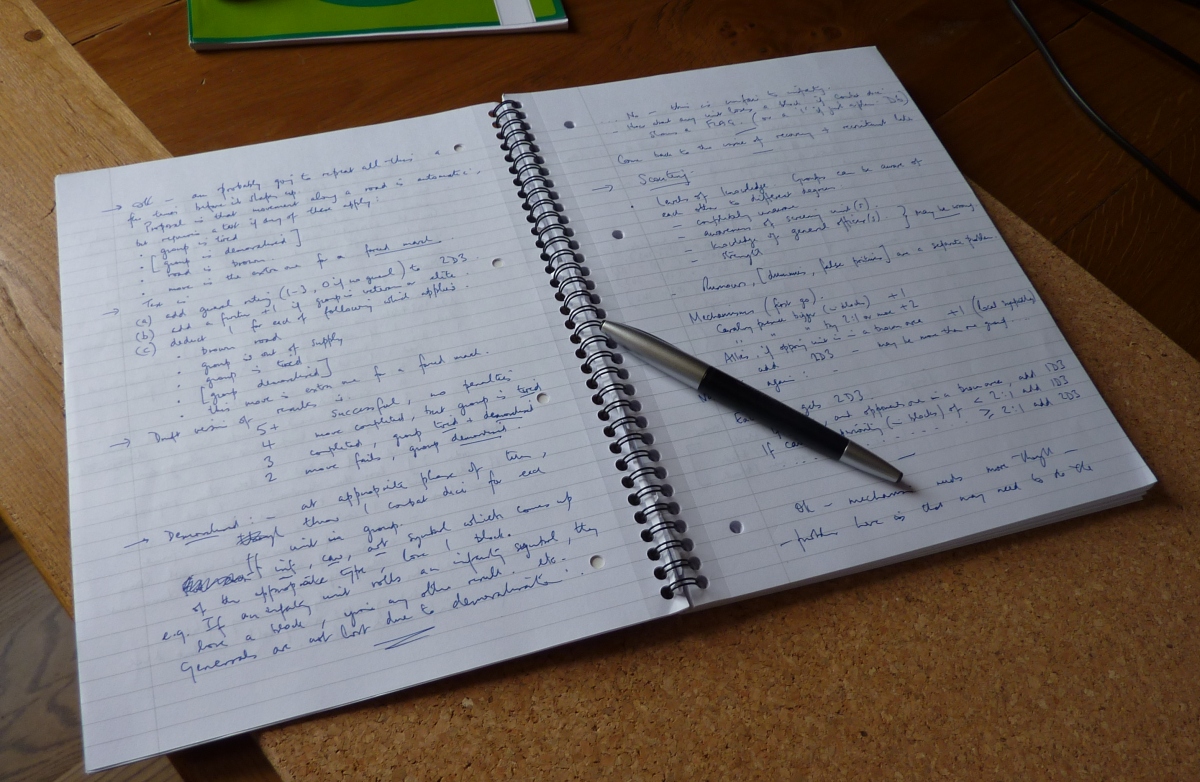 → OK – am probably going to repeat all this a
few times before it shapes up.
Proposal is that movement along a road is automatic,
but requires a test if any of these apply:
· group is tired
· [group is demoralised]
· road is broken
· move is the extra one for a forced march.
→ Test is
(a) add general rating (1-3, 0 if no general) to 2D3
(b) add a further +1 if group is veteran or elite
(c) deduct 1 for each of following which applies.
· broken road
· group is out of supply
· group is tired
· [group demoralised]
· this move is extra one for a forced march.
→ Draft version of results is
5+ successful, no penalties
4 move completed, but group is tired
3 completed, group tired + demoralised
2 move fails, group demoralised
→ Demoralised: – at appropriate phase of turn,
throw 1 combat dice for each
unit in group.
If inf, cav, art symbol which comes up
of the appropriate type, lose 1 block.
e.g. If an infantry unit rolls an infantry symbol, they
lose a block, ignore any other result. etc.
Generals are not lost due to demoralisation.
No – this is unfair to infantry
– How about any unit loses a block if combat dice
shows a FLAG. (or a 1 if just a plain D6)
Come back to the issue of recovery + recruitment later
→ Scouting.
· Levels of knowledge. Groups can be aware of
each other to different degrees
– completely unaware
– awareness of screening unit(s).
– knowledge of general officer(s). } may be wrong
– strength
· Rumours, [dummies, false positives] are a separate problem
Mechanisms (first go).
Cavalry presence bigger (~ blocks) +1
" " by 2:1 or more +2
Also, if opposing unit is in a town area +1 (local sympathy)
add 1D3 – may be more than one group
again :
gets 2D3.
and opponents are in a town area, add 1D3
If (~ blocks) of < 2:1 add 1D3
≥ 2:1 add 2D3
OK – mechanism needs more thought –
– problem here is that may need to do the